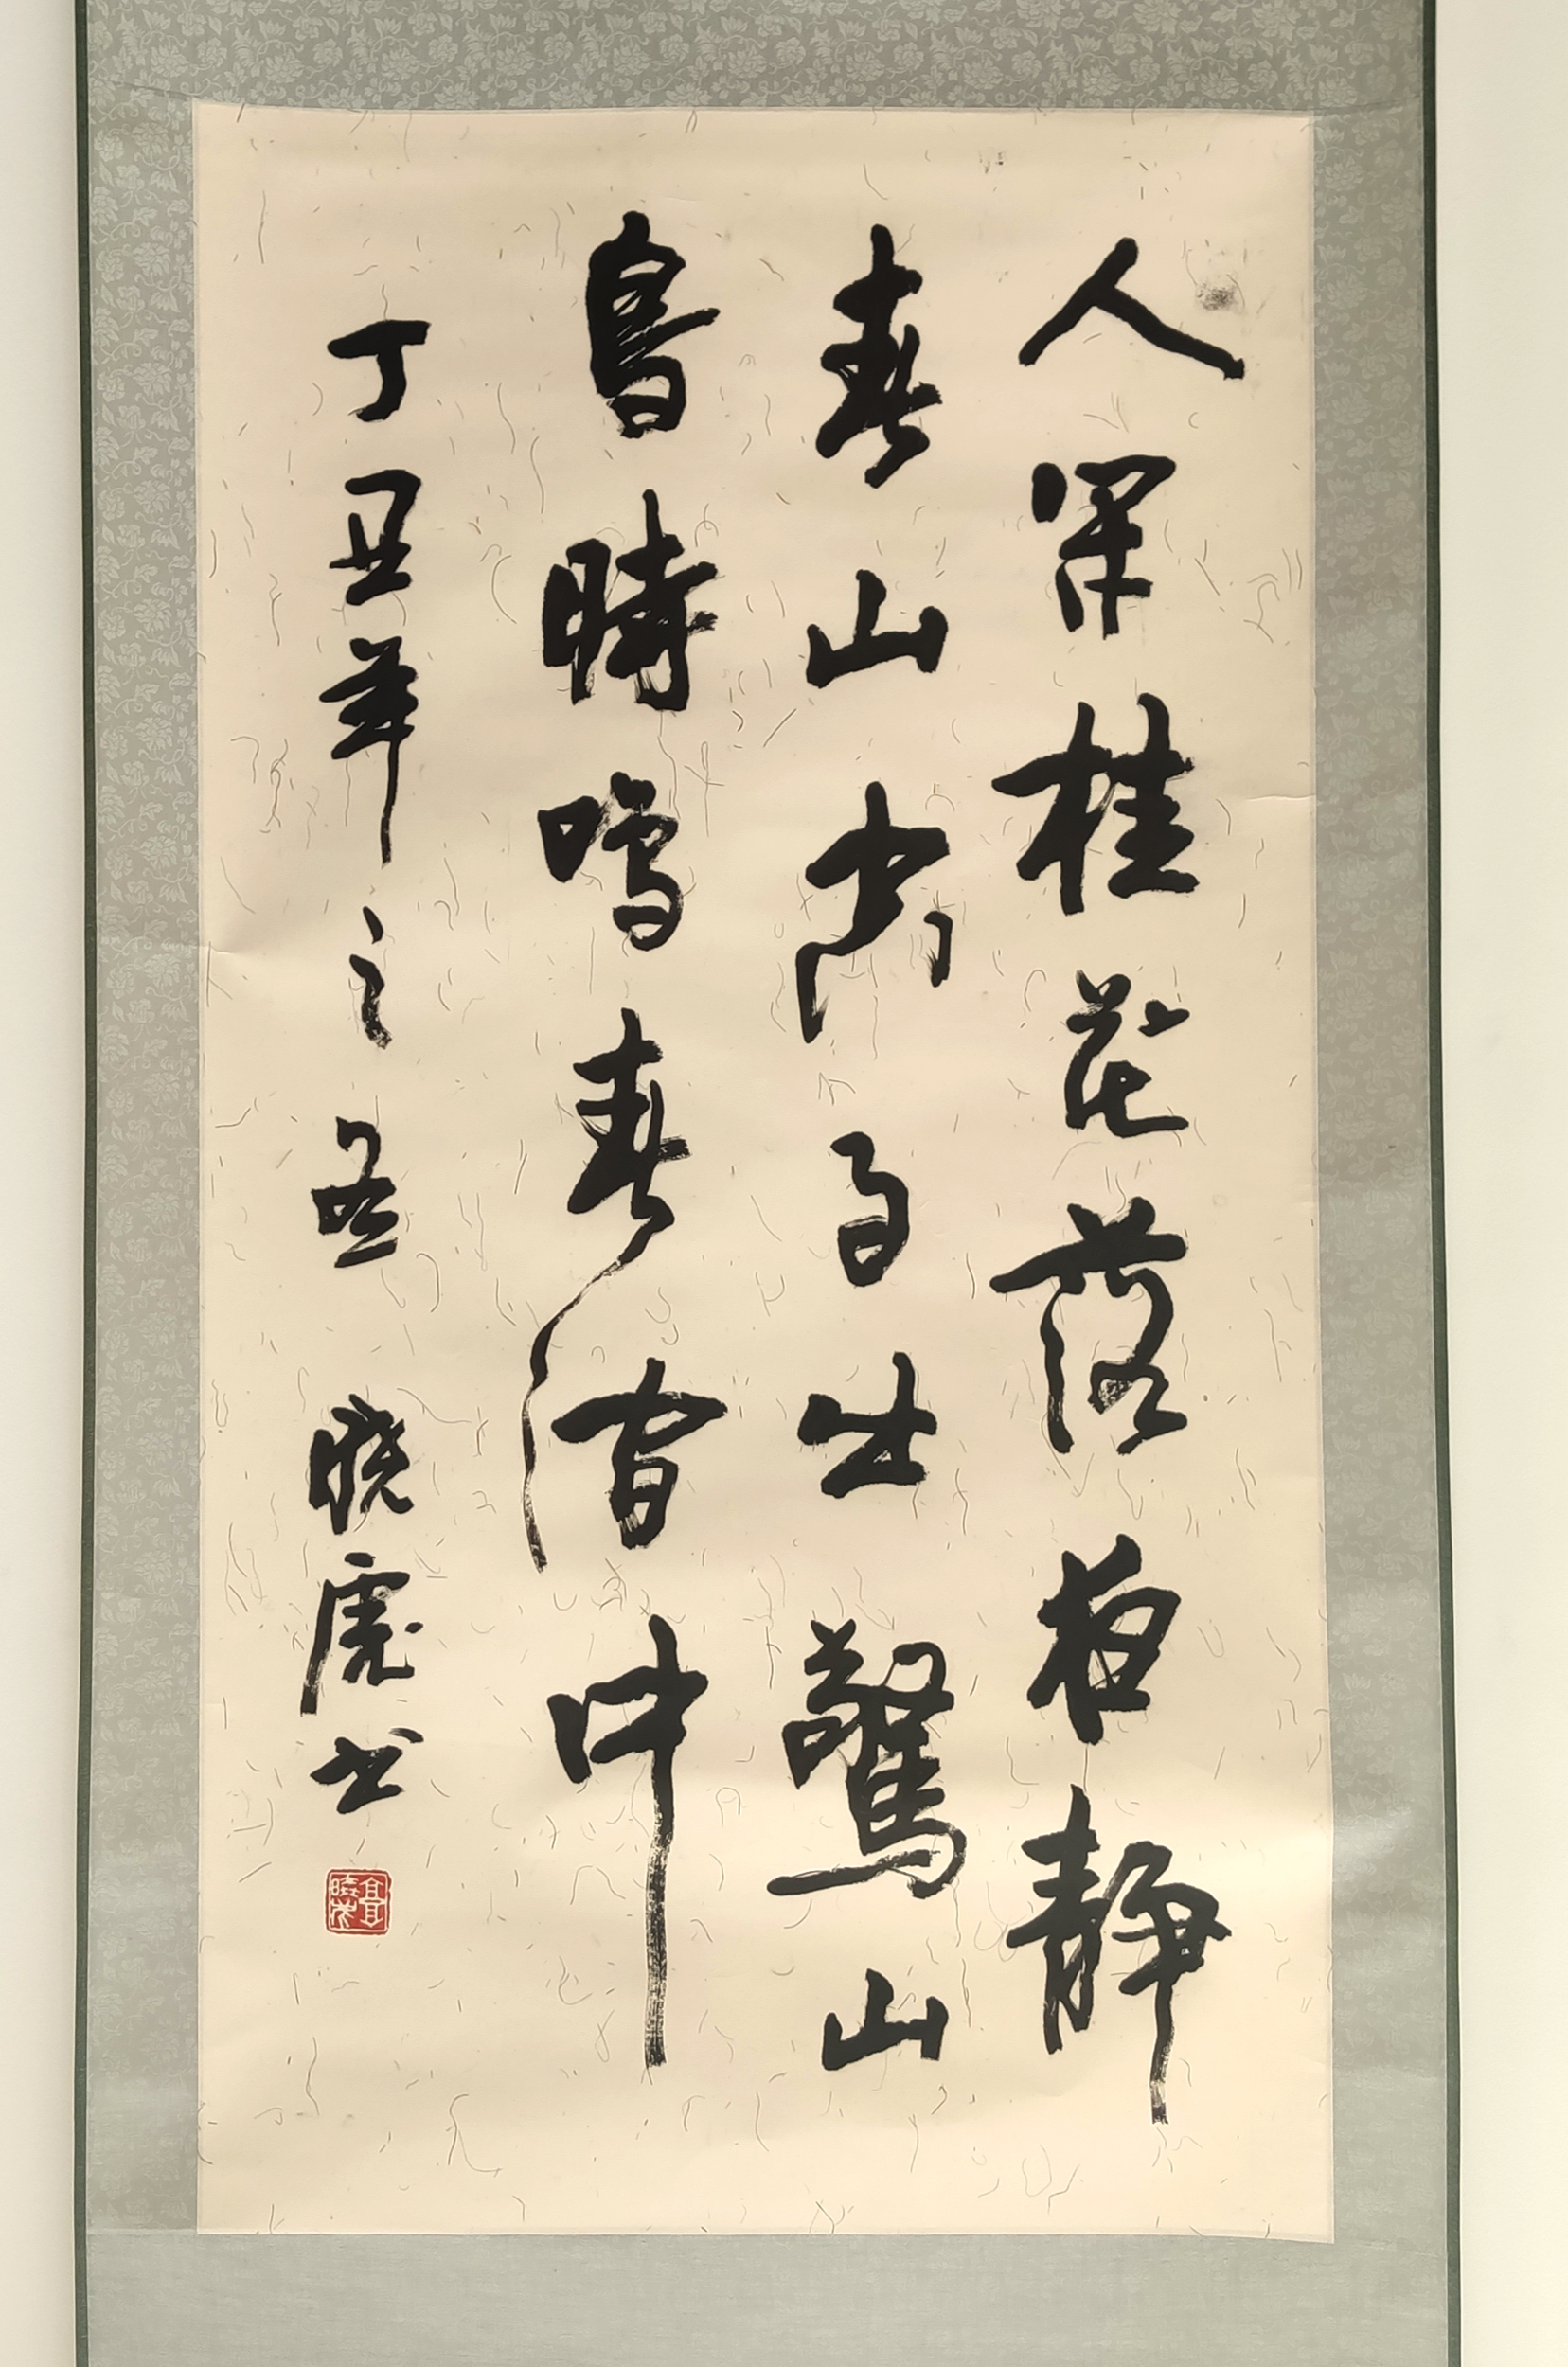 人闲桂花落夜静
春山空月出驚山
鳥時鳴春澗中
丁丑年之 晓虎书